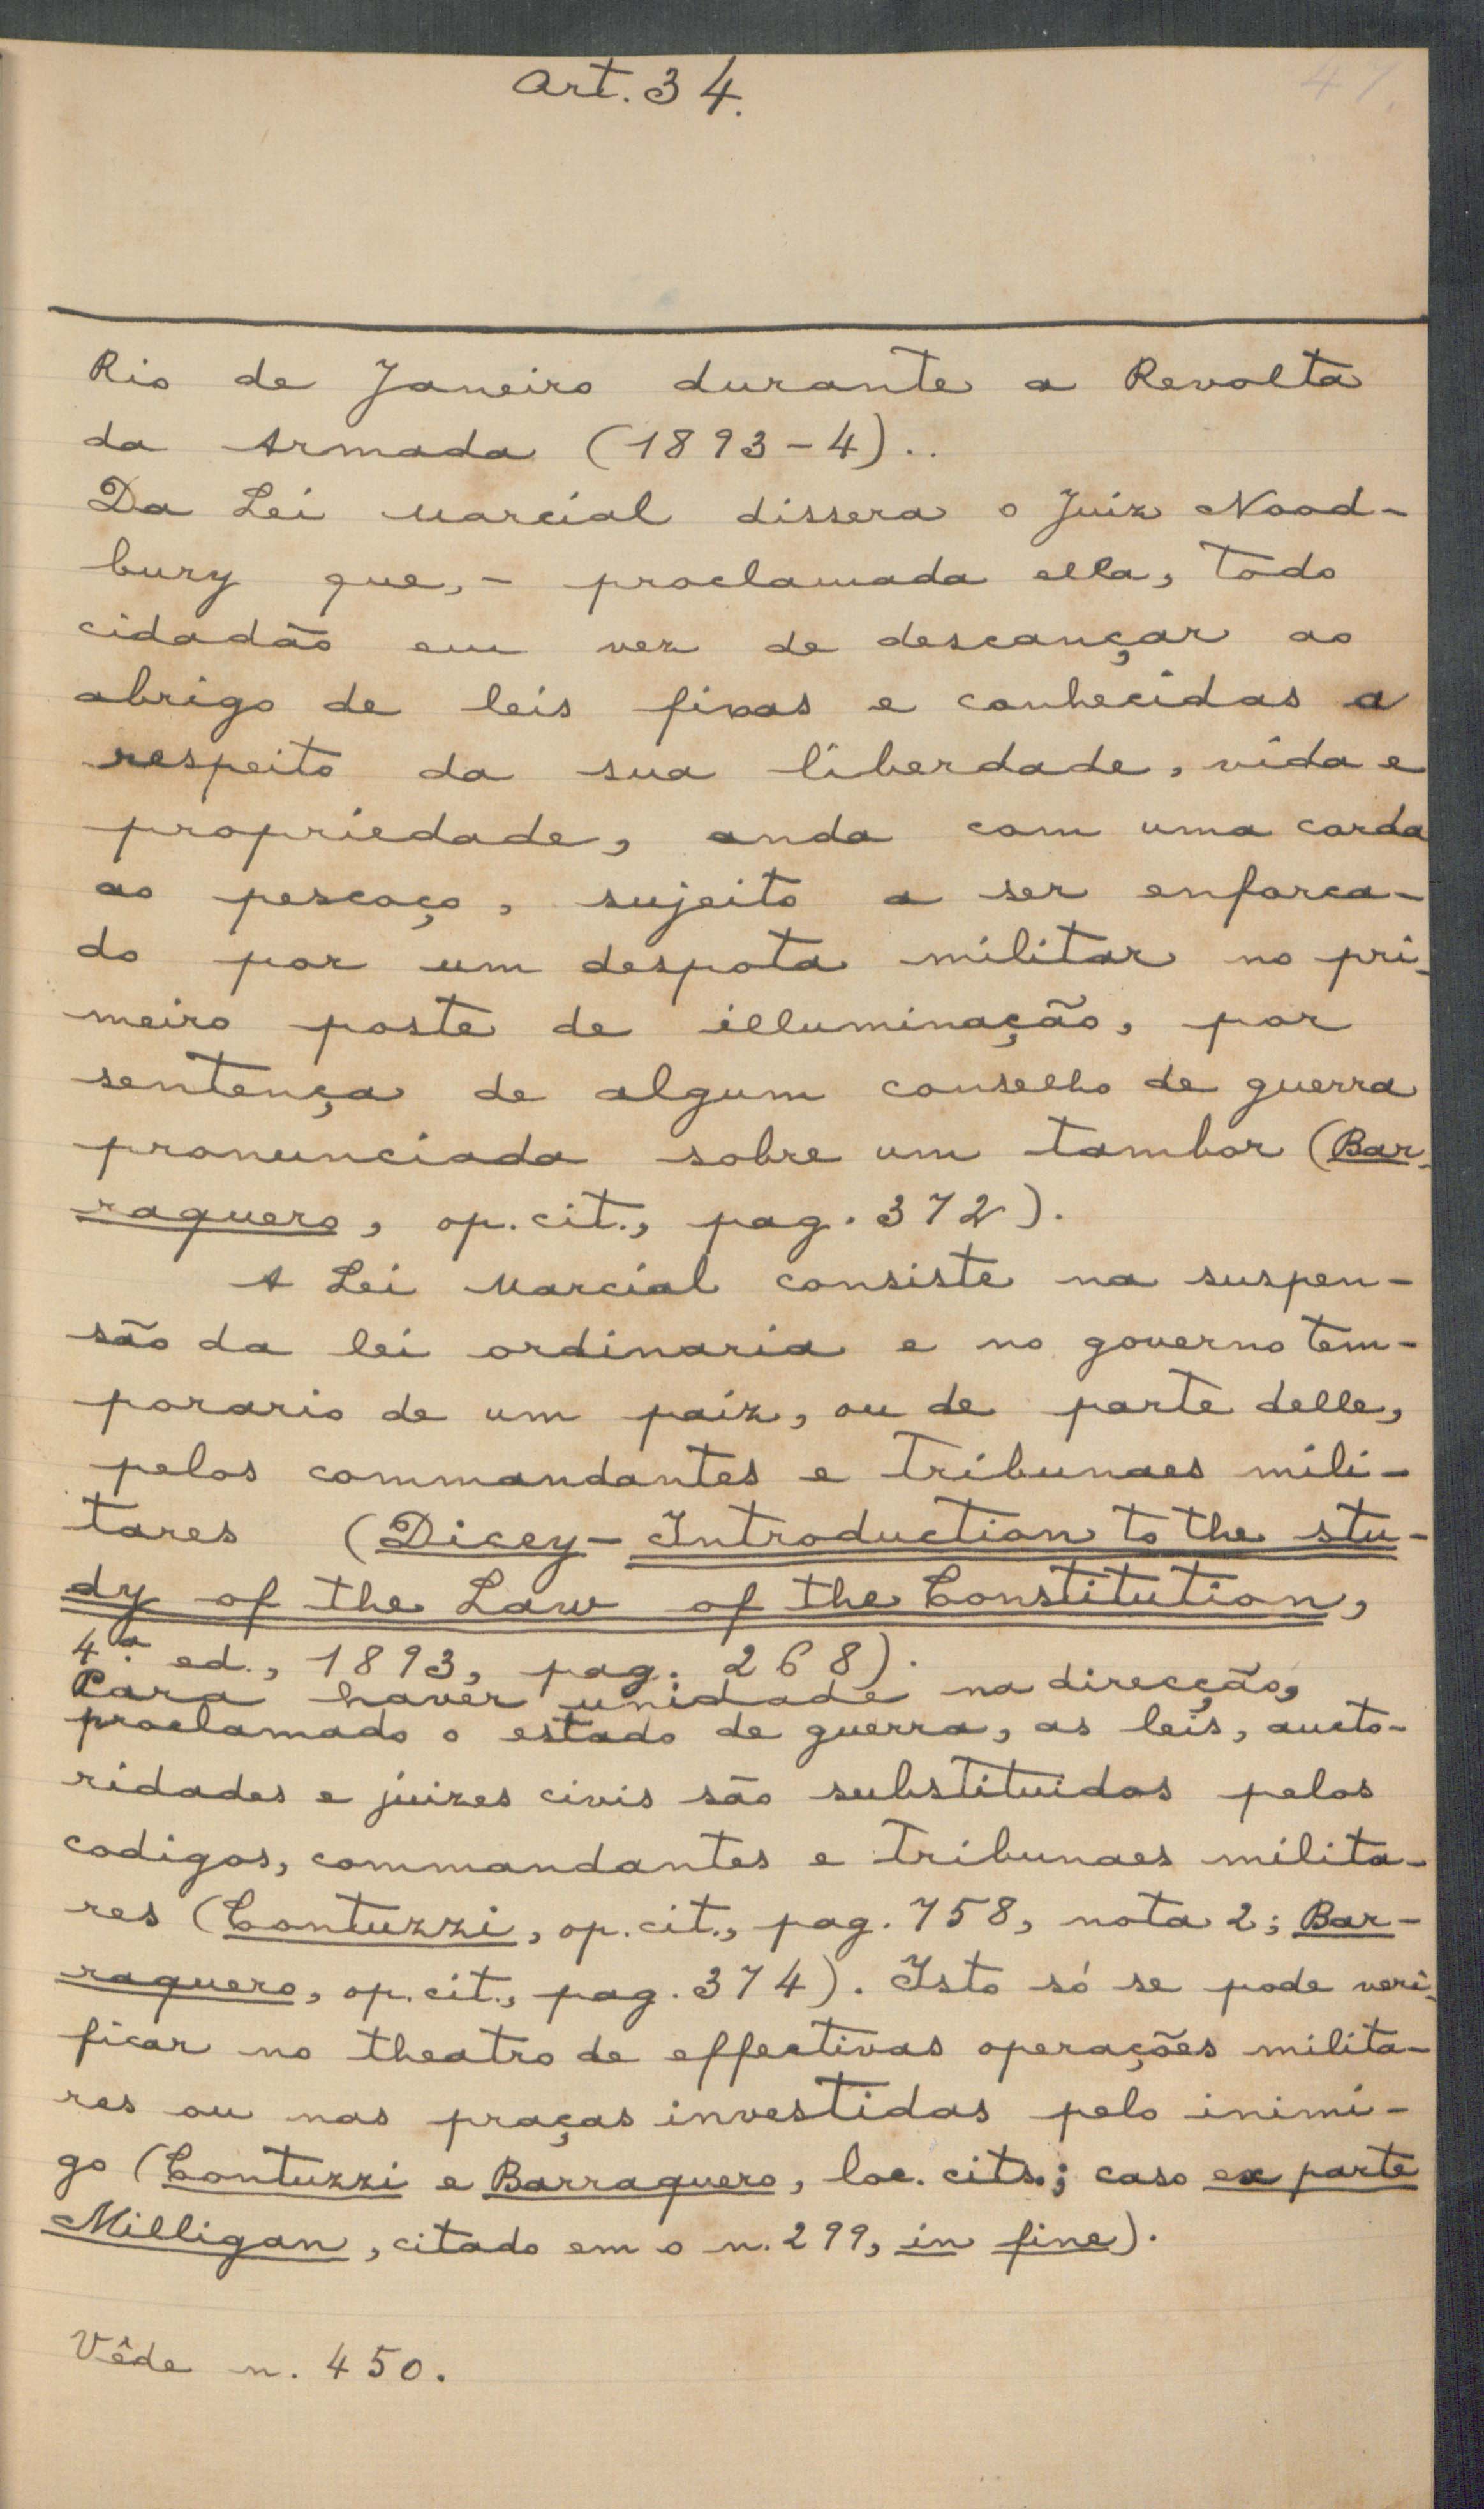 Art. 34.
41.
Rio de Janeiro durante a Revolta
da Armada (1893-4)..
Da Lei Marcial dissera o Juiz Wood-
bury que, - proclamada ella, todo
cidadão em vez de descançar ao
abrigo de leis fixas e conhecidas a
respeito da sua liberdade, vida e
propriedade, anda com uma corda
ao pescoço, sujeito a ser enforca-
do por um despota militar no pri-
meiro poste de illuminação, por
sentença de algum conselho de guerra
pronunciada sobre um tambor (Bar-
raquero, op. cit., pag. 372).
A Lei Marcial consiste na suspen-
são da lei ordinaria e no governo tem-
porario de um paiz, ou de parte delle,
pelos commandantes e tribunaes mili-
tares (Dicey - Introduction to the stu-
dy of the Law of the Constitution,
4ª ed., 1893, pag. 268).
Para haver unidade na direcção,
proclamado o estado de guerra, as leis, aucto-
ridades e juizes civis são substituidos pelos
codigos, commandantes e tribunaes milita-
res (Contuzzi, op. cit., pag. 758, nota 2; Bar-
raquero, op. cit., pag. 374). Isto só se pode veri-
ficar no theatro de effectivas operações milita-
res ou nas praças investidas pelo inimi-
go (Contuzzi e Barraquero, loc. cits.; caso ex parte
Milligan, citado em o n. 299, in fine).
Vêde n. 450.